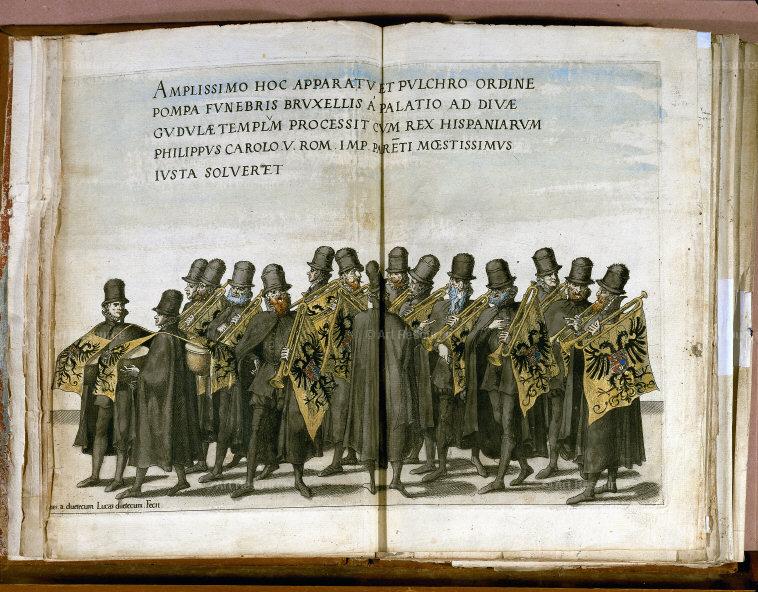 AMPLISSIMO HOC APPARATV ET PVLCHRO ORDINE
POMPA FVNEBRIS BRVXELLIS Á PALATIO AD DIVÆ
GVDVLÆ TEMPLVM PROCESSIT CVM REX HISPANIARVM
PHILIPPVS CAROLO .V. ROM. IMP. PARĒTI MŒSTISSIMVS
IVSTA SOLVERET
a. duetecum Lucas duetecum Fecit